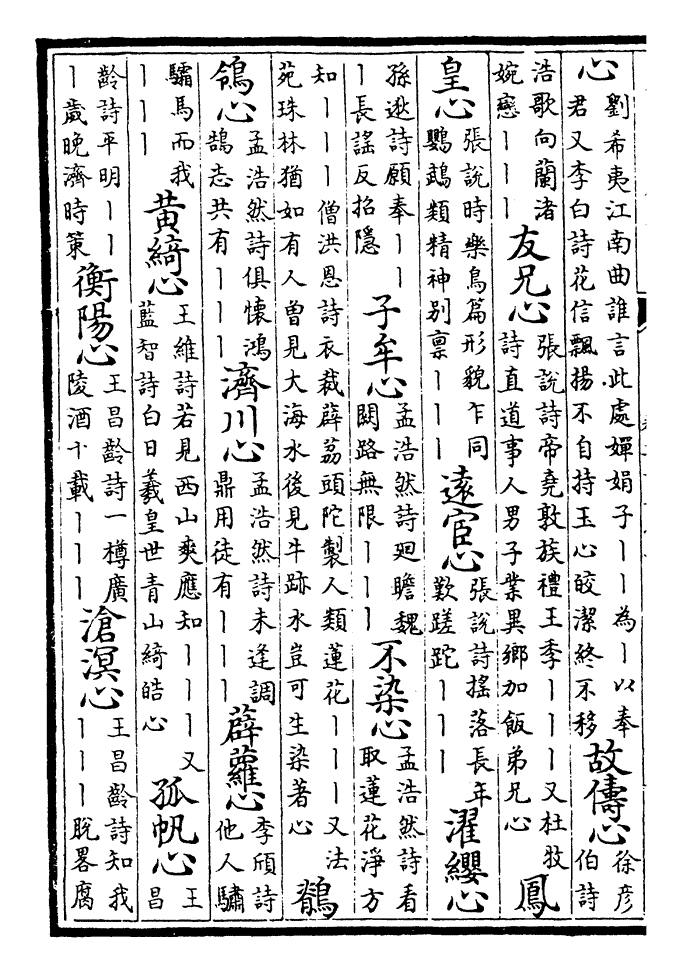 心劉希夷江南曲誰言此處嬋娟子丨丨為丨以奉君又李白詩花信飄揚不自持玉心皎潔終不移故儔心徐彦伯詩
浩歌向蘭渚婉戀丨丨丨友兄心張說詩帝堯敦族禮王季丨丨丨又杜牧詩直道事人男子業異鄉加飯弟兄心鳳
皇心張說時樂鳥篇形貌乍同鸚鵡類精神别禀丨丨丨遠宦心張說詩搖落長年歎蹉跎丨丨丨濯纓心
孫逖詩願奉丨丨丨長謡反招隱子牟心孟浩然詩廻瞻魏闕路無限丨丨丨不染心孟浩然詩看取蓮花淨方
知丨丨丨僧洪恩詩衣裁薜荔頭陀製人類蓮花丨丨丨又法苑珠林猶如有人曾見大海水後見牛跡水豈可生染著心鶺
鴒心孟浩然詩俱懷鴻鵠志共有丨丨丨濟川心孟浩然詩未逢調鼎用徒有丨丨丨薜蘿心李頎詩他人驌
驦馬而我丨丨丨黄綺心王維詩若見西山爽應知丨丨丨又藍智詩白日羲皇世青山綺皓心孤帆心王昌
齡詩平明丨丨丨歲晚濟時策衡陽心王昌齡詩一樽廣陵酒十載丨丨丨滄溟心王昌齡詩知我丨丨丨脫畧腐